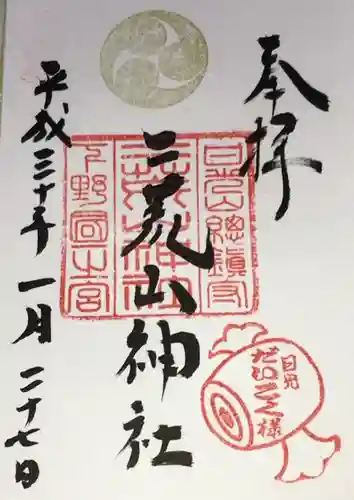 奉拝
二荒山神社
平成三十年一月二十七日
日光山總鎮守
下野國一之宮
日光
だいこく様